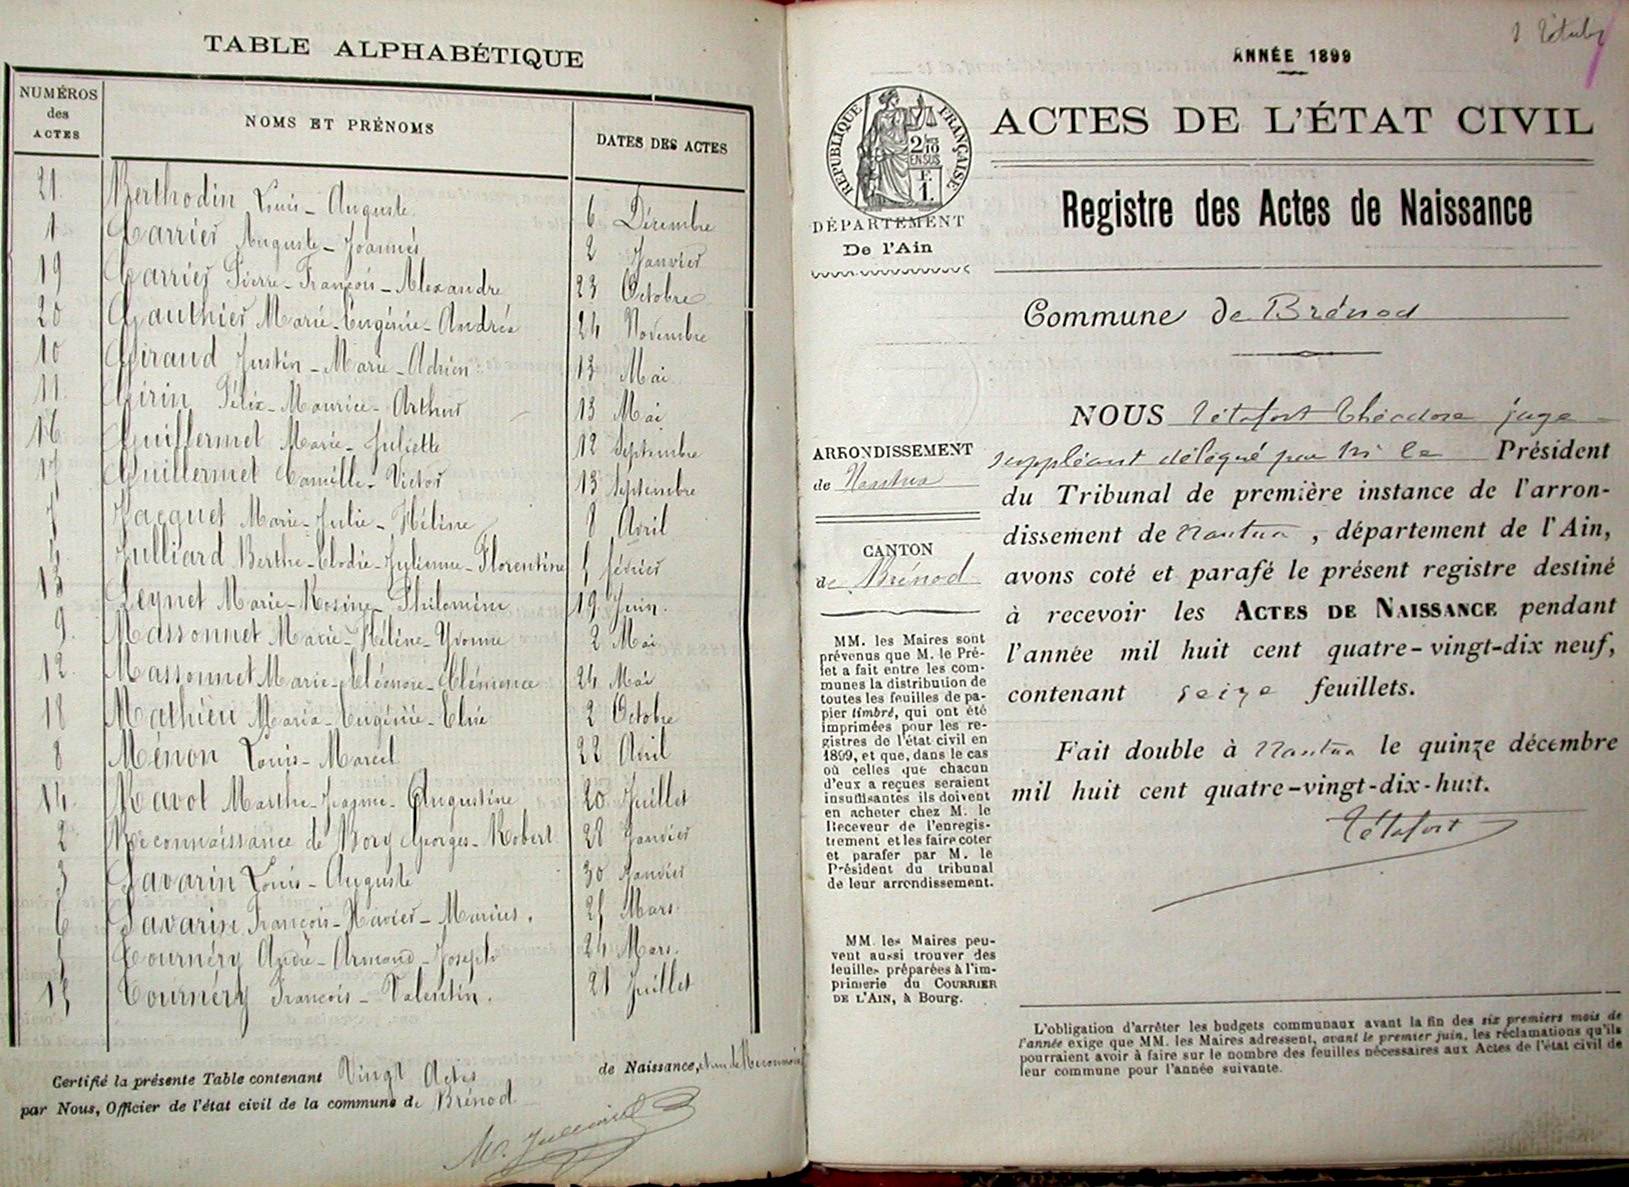 TABLE ALPHABÉTIQUE
NUMÉROS des ACTES
NOMS ET PRÉNOMS
DATES DES ACTES
21. Berthodin Louis - Auguste 6 Décembre
1 Carrier Auguste - Joannès 2 Janvier
19 Carrier Pierre - François - Alexandre 23 Octobre
20 Gauthier Marie - Eugénie - Andréa 24 Novembre
10 Giraud Justin - Marie - Adrien 13 Mai
11. Girin Félix - Maurice - Arthur 13 Mai
16 Guillermet Marie - Juliette 12 Septembre
17 Guillermet Camille - Victor 13 Septembre
7 Jacquet Marie - Julie - Hélène 8 Avril
4 Julliard Berthe - Elodie - Julienne - Florentine 5 février
13 Leynet Marie - Rosine - Philomène 19 Juin.
9. Massonnet Marie - Hélène - Yvonne 2 Mai
12. Massonnet Marie - Eléonore - Clémence 24 Mai
18 Mathieu Maria - Eugénie - Elise 2 Octobre
8 Ménon Louis - Marcel 22 Avril
14. Ravot Marthe - Jeanne - Augustine 20 Juillet
2 Reconnaissance de Bory Georges - Robert 28 Janvier
3 Savarin Louis - Auguste 30 Janvier
6 Savarin François - Xavier - Marius. 25 Mars.
5 Tournéry André - Armand - Joseph 24 Mars.
15 Tournéry François - Valentin. 21 Juillet
Certifié la présente Table contenant Vingt Actes de Naissance, et un de Reconnais
par Nous, Officier de l'état civil de la commune de Brénod
M. Julliard
ANNÉE 1899
RÉPUBLIQUE FRANÇAISE
2/10 EN SUS
F. 1.
ACTES DE L'ÉTAT CIVIL
Registre des Actes de Naissance
DÉPARTEMENT
De l'Ain
Commune de Brénod
ARRONDISSEMENT
de Nantua
CANTON
de Brénod
MM. les Maires sont
prévenus que M. le Pré-
fet a fait entre les com-
munes la distribution de
toutes les feuilles de pa-
pier timbré, qui ont été
imprimées pour les re-
gistres de l'état civil en
1899, et que, dans le cas
où celles que chacun
d'eux a reçues seraient
insuffisantes ils doivent
en acheter chez M. le
Receveur de l'enregis-
trement et les faire coter
et parafer par M. le
Président du tribunal
de leur arrondissement.
MM. les Maires peu-
vent aussi trouver des
feuilles préparées à l'im-
primerie du COURRIER
DE L'AIN, à Bourg.
NOUS Tétafort Théodore juge
suppléant délégué par Mr le Président
du Tribunal de première instance de l'arron-
dissement de Nantua, département de l'Ain,
avons coté et parafé le présent registre destiné
à recevoir les ACTES DE NAISSANCE pendant
l'année mil huit cent quatre-vingt-dix neuf,
contenant seize feuillets.
Fait double à Nantua le quinze décembre
mil huit cent quatre-vingt-dix-huit.
Tétafort
L'obligation d'arrêter les budgets communaux avant la fin des six premiers mois de
l'année exige que MM. les Maires adressent, avant le premier juin, les réclamations qu'ils
pourraient avoir à faire sur le nombre des feuilles nécessaires aux Actes de l'état civil de
leur commune pour l'année suivante.